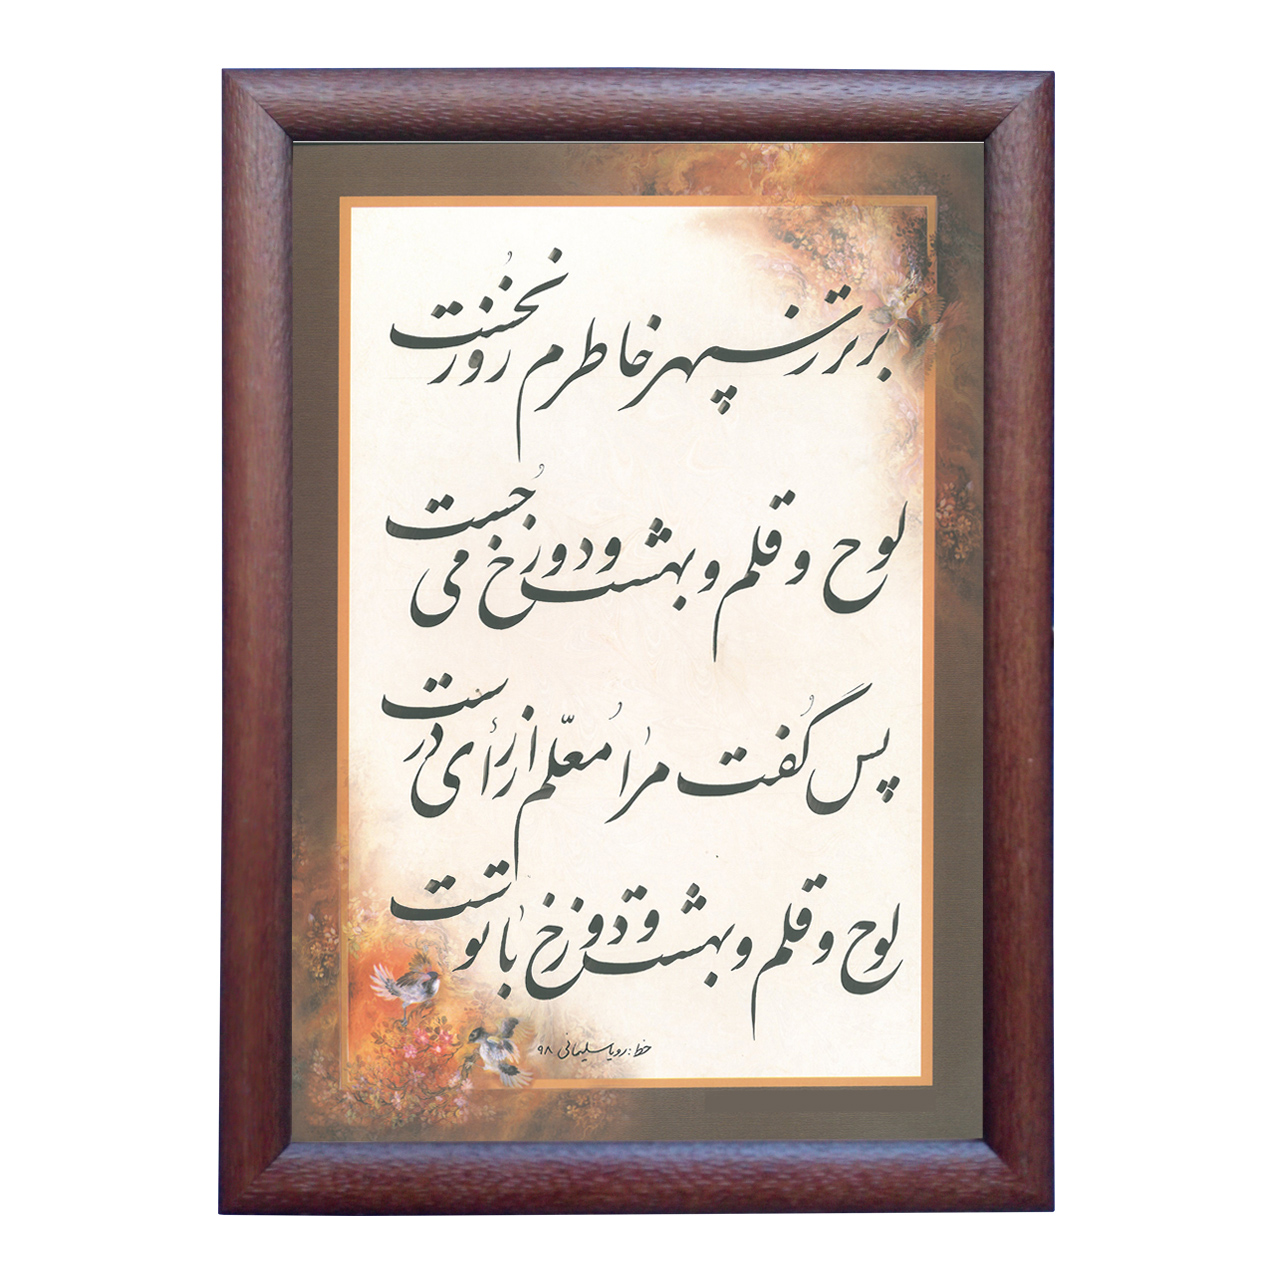 برتر ز سپهر خاطرم روز نخُست
لوح و قلم و بهشت و دوزخ می جُست
پس گُفت مرا مُعلّم از رأی درست
لوح و قلم و بهشت و دوزخ با توست
خط : رویا سلیمانی ۹۸